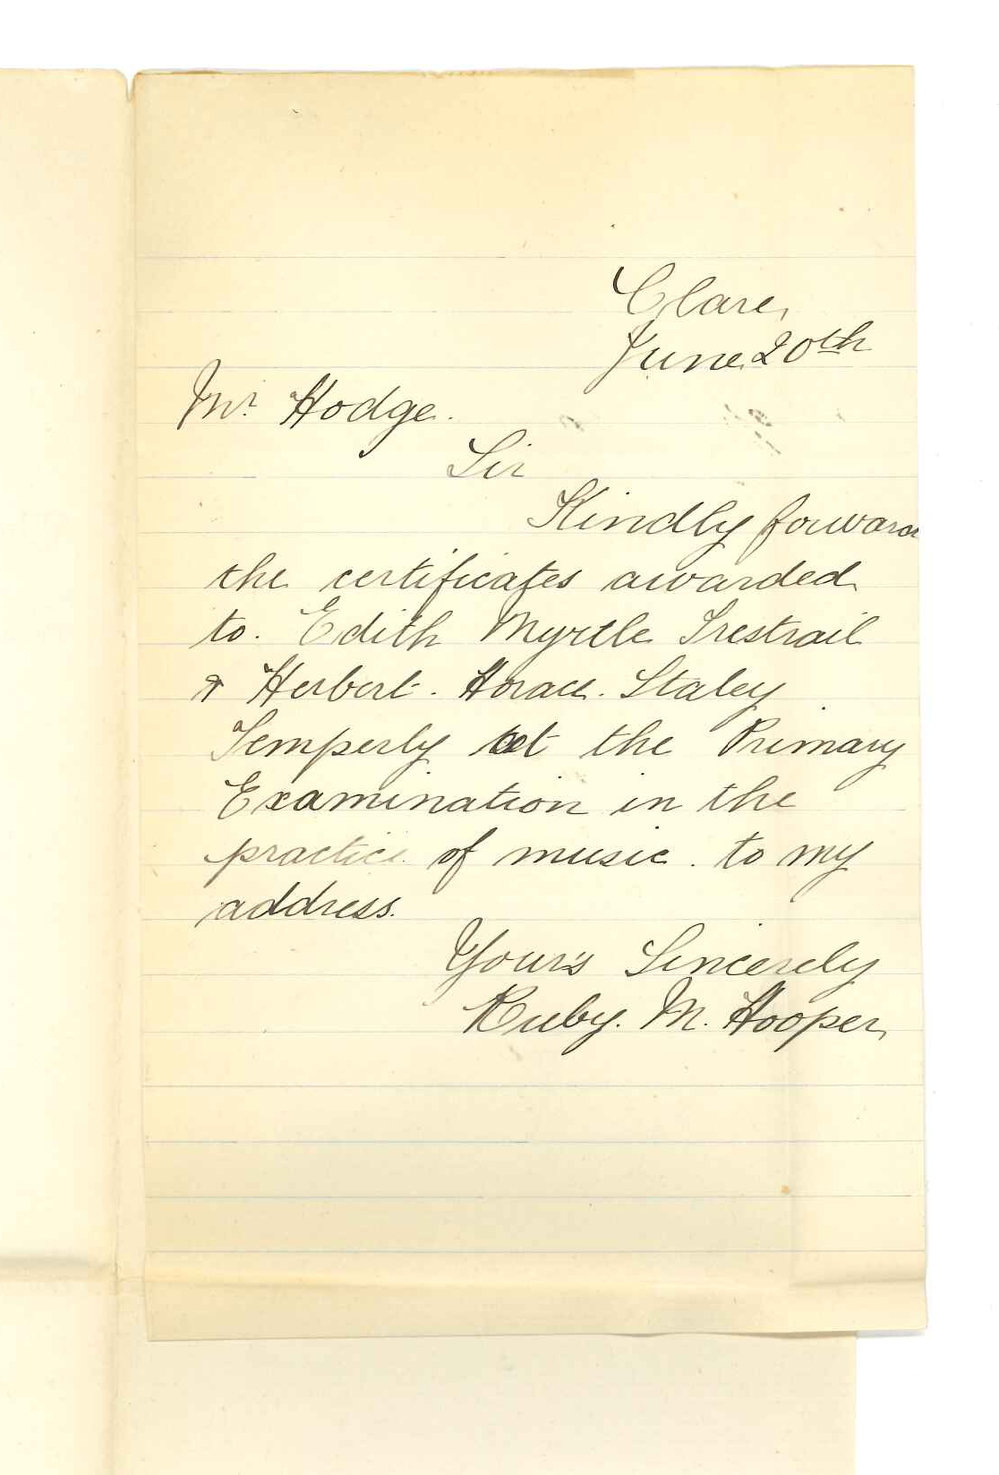 Clare,
June 20th
Mr. Hodge.
Sir
Kindly forward
the certificates awarded
to. Edith Myrtle Trestrail
& Herbert. Horace. Staley
Temperly at the Primary
Examination in the
practice of music. to my
address.
Your's Sincerely
Ruby. M. Hooper,